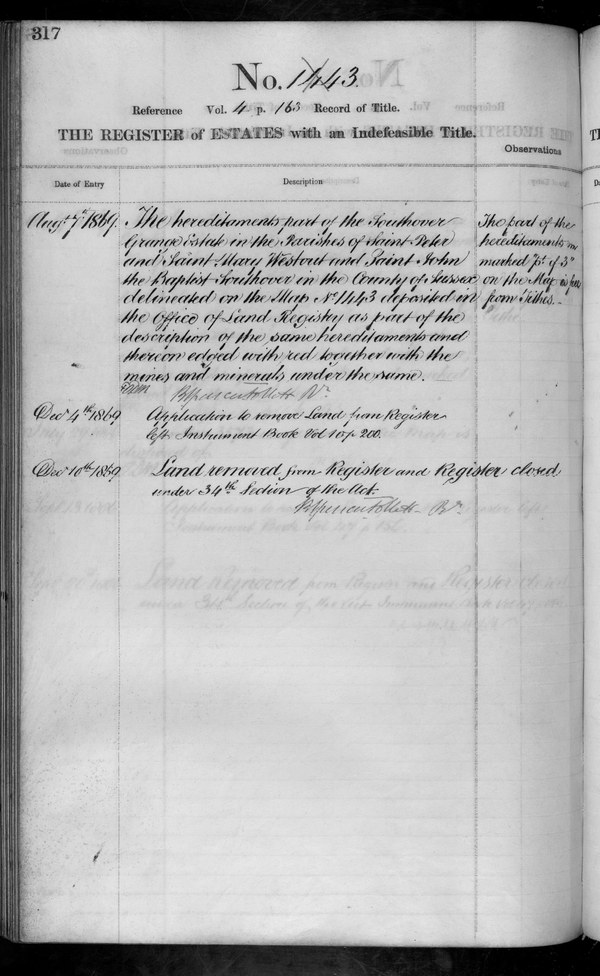 317
No. 1443.
Reference Vol. 4 p. 163 Record of Title.
THE REGISTER of ESTATES with an Indefeasible Title.
Observations
Date of Entry
Description
Augt. 7th 1869.
The hereditaments part of the Southover
Grange Estate in the Parishes of Saint Peter
and Saint Mary Westout and Saint John
the Baptist Southover in the County of Sussex
delineated on the Map No. 1443 deposited in
the Office of Land Registry as part of the
description of the same hereditaments and
thereon edged with red together with the
mines and minerals under the same.
The part of the
hereditaments
marked "pt. of 3"
on the Map is free
from Tithes.
Brent Spencer Follett Rr.
Decr 4th 1869
Application to remove Land from Register
left Instrument Book Vol 10 p 200.
Decr 10th 1869.
Land removed from Register and Register closed
under 34th Section of the Act.
B Spencer Follett Rr.